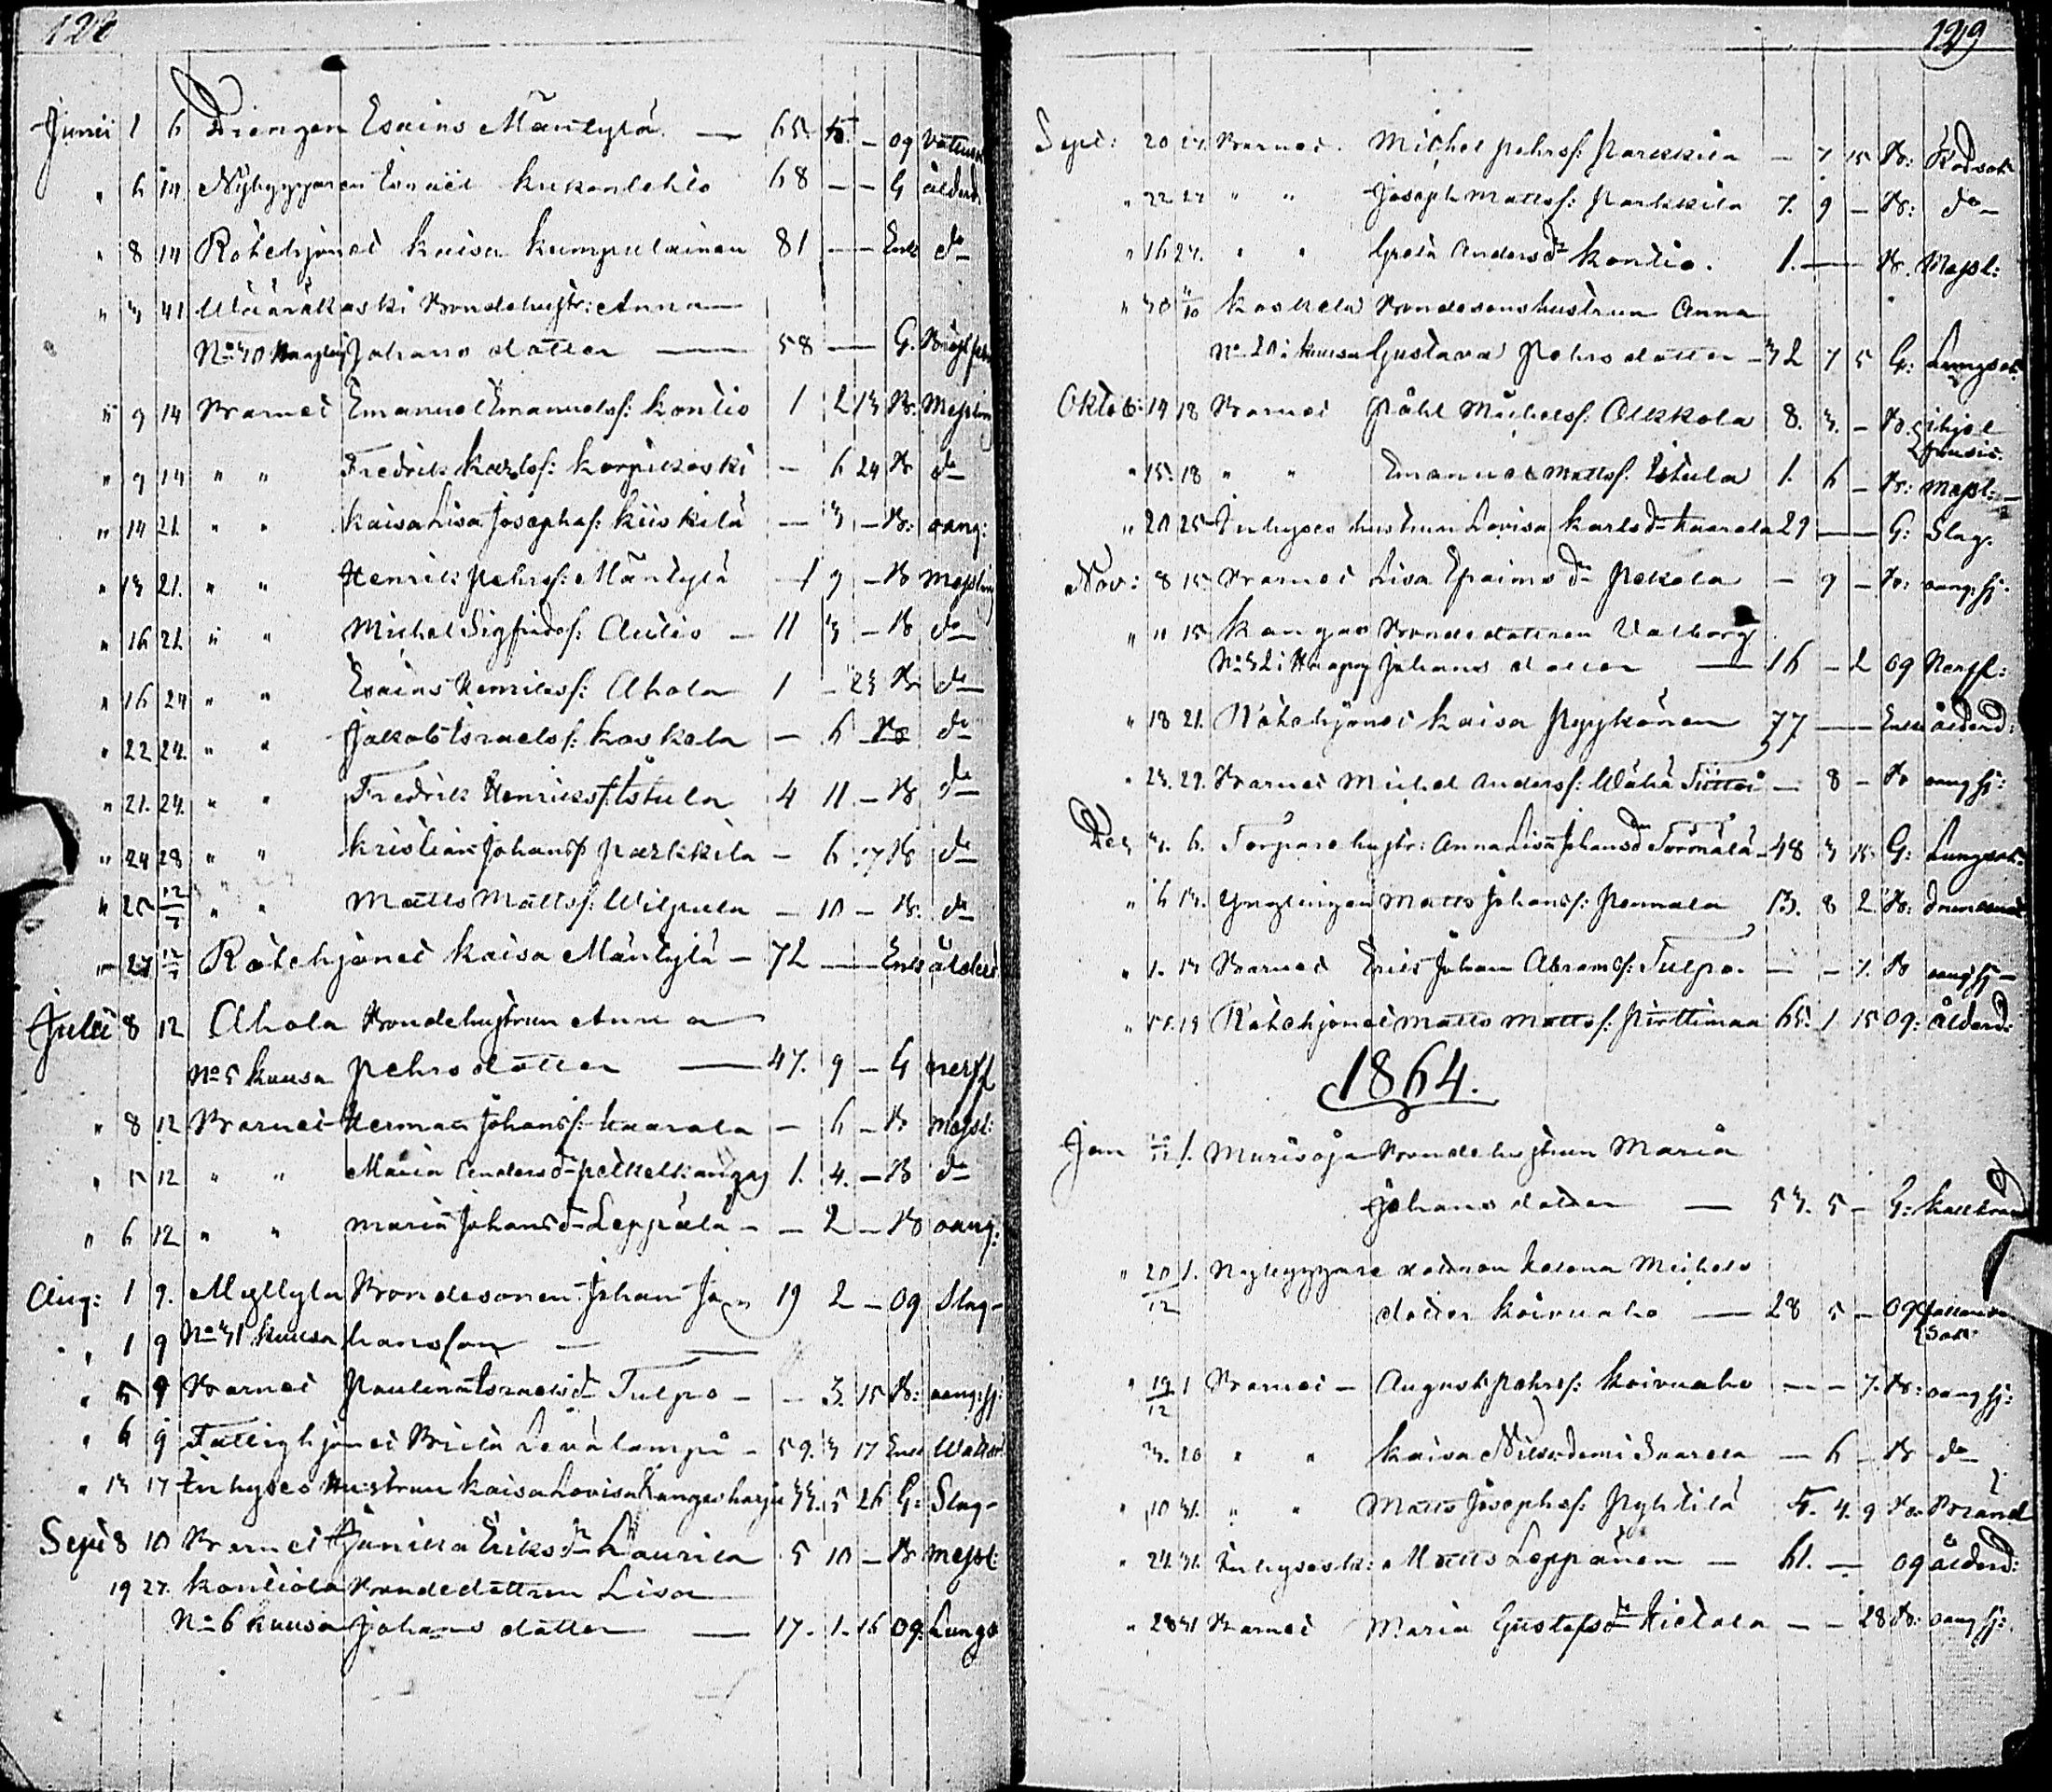 128
Junii 1 6 Drengen Esaias Mäntylä — 65. 5. - og Vattus
" 6 14 Nybyggaren Israel Kukonlehto 68 — - G ålderd.
" 8 14 Rotehjonet Kaisa Kumpulainen 81 — - Enk do
" 3 41 Wääräkoski Bondehustr: Anna
No 30 Haapajg Johans dotter — 58 — G.
" 9 14 Barnet Emanuel Emanuelss: Kontio 1 2 13 B. Messling
" 9 14 " " Fredrik Karlss: Korpikoski - 6 24 B do
" 14 21. " " Kaisa Lisa Josephs: Kiiskilä — 3 - B: aang:
" 13 21. " " Henrik Pehrss: Mäntylä -1 9 - B Messling
" 16 21. " " Michel Sigfridss: Autio - 11 3 - B do
" 16 24 " " Esaias Henrikss: Ahola 1 - 23 B do
" 22 24. " " Jakob Israelss: Koskela - 6 - B do
" 21. 24. " " Fredrik Henrikss: Estula 4 11. - B do
" 24 28 " " Kristian Johanss Parkkila - 6 7 B do
" 25 12/7 " " Matts Mattss: Wilpula - 10 - B. do
" 27 12/7 Rotehjonet Kaisa Mäntylä - 72 — Enk ålderd
Julii 8 12 Ahola Bondehustrun Anna
No 5 Kuusa Pehrs dotter — 47. 9 - G nerff
" 8 12 Barnet Herman Johanss: Kaarala - 6 - B Messl:
" 5 12 " " Maria Anders dr Petkelkangas 1. 4. - B do
" 6 12 " " Maria Johans dr Leppälä - - 2 - B aang:
Aug: 1 9. Myllylä Bondesonen Johan Jo 19 2 - og Slag-
" 1 9 No 31 Kuusa hansson —
" 5 9 Barnet Paulina Israels dr Tulpo - - 3. 15 B: aang:sj:
" 6 9 Fattighjonet Brita Levälampi - 59. 3 17 Enk Wattus
" 13 17 Inhyses Hustrun Kaisa Lovisa Kangasharju 33. 5 26 G: Slag-
Sept 8 10 Barnet Jamika Eriks dr Laurila 5 10 - B Messl:
19 27. Kontiola Bondedottren Lisa
No 6 Kuusa Johans dotter — 17. 1. 16 og. Lungs
129
Sept: 20 27. Barnet. Michel Pehrss: Parkkila - 7 15 B: Rödsot
" 22 27 " " Joseph Mattss: Parkkila 7. 9 - B: do
" 16 27. " " Greta Anders dr Kontio. 1. — B. Messl:
" 30 4/10 Koskela Bondesonshustrun Anna
No 20 i Kuusa Gustava Pehrs dotter - 32 7 5 G: Lungsot.
Oktob: 14 18 Barnet Påhl Michelss: Alkkola 8. 3. - B. ihjel
frusit.
" 15. 18 " " Emanuel Mattss. Estula 1. 6 - B: Messl:
" 20 25 Inhyses hustrun Lovisa Karls dr Kaarela 29 — G: Slag.
Nov: 8 15. Barnet Lisa Efraims dr Pekola - 9 - B: aang:sj:
" " 15 Kangas Bondedottren Valborg
No 32 i Haapajg Johans dotter — 16 - 2 og Nerff:
" 18 21. Rotehjonet Kaisa Pyykönen 77 — Enka ålderd:
" 23. 29. Barnet Michel Anderss: Wähä Tiittoi — 8 - B aang sj:
Dec 3. 6. Torpare hustr: Anna Lisa Johans dr Törmälä - 48 3 15. G: Lungsot:
" 6 13. Ynglingen Matts Johanss: Pennala 13. 8 2. B: drunknat
" 1. 13 Barnet Eric Johan Abramss: Tulpo. — - 7. B aang sj
" 15. 19 Rotehjonet Matts Mattss: Pirttimaa 65. 1 15 og: ålderd:
1864.
Jan 1. Murisoja Bondehustrun Maria
Johans dotter — 53. 5 - G: Kallbrand
" 20/12 1. Nybyggare dottren Helena Michels
dotter Koivuaho — 28 5 - og
" 19/12 1 Barnet - August Pehrss: Koivuaho — - 7. B: aang sj:
3. 10 " " Kaisa Nikodemi Saarela — 6 - B do
" 10 31. " " Matts Josephss: Pyhtilä 5. 4. 9 B. Bränd
" 24. 31. Inhyseskl: Matts Leppänen — 61. — og ålderd:
" 28 31 Barnet Maria Gustafs dr Hietala — - 28 B: aang sj: